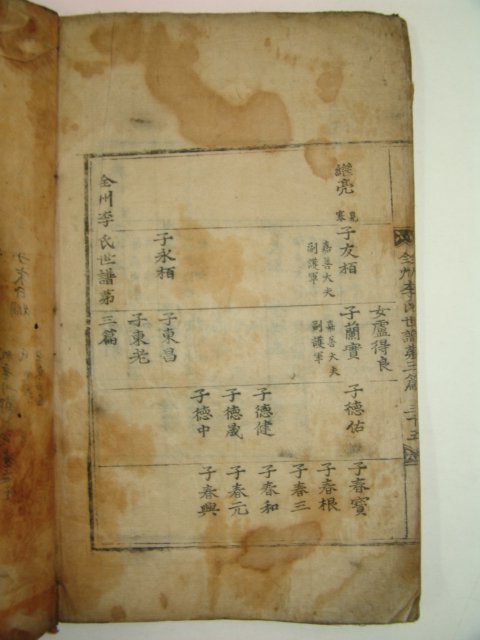 全州李氏世譜第三篇 三十五
亮
子友栢
嘉善大夫
副護軍
子永栢
女盧得良
子蘭實
嘉善大夫
副護軍
子東昌
子東老
子德佑
子德健
子德晟
子德中
子春寶
子春根
子春三
子春和
子春元
子春興
全州李氏世譜第三篇